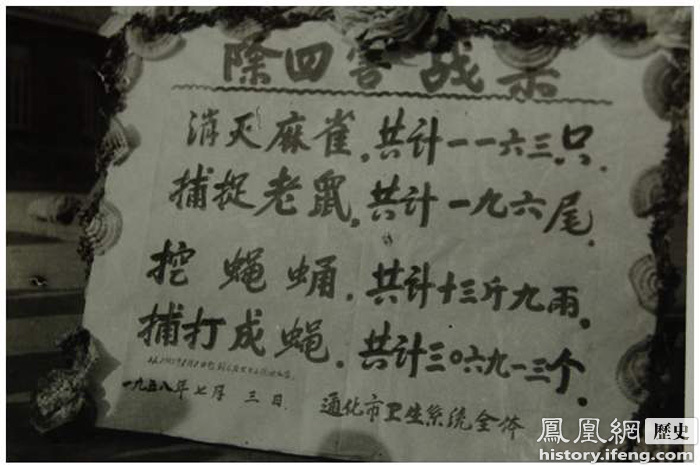 除四害战果
消灭麻雀.共计一一六三只.
捕捉老鼠.共计一九六尾.
挖蝇蛹.共计十三斤九两.
捕打成蝇.共计三〇六九一三个.
一九五八年七月三日.
通化市卫生系统全体
鳳凰網 歷史
history.ifeng.com